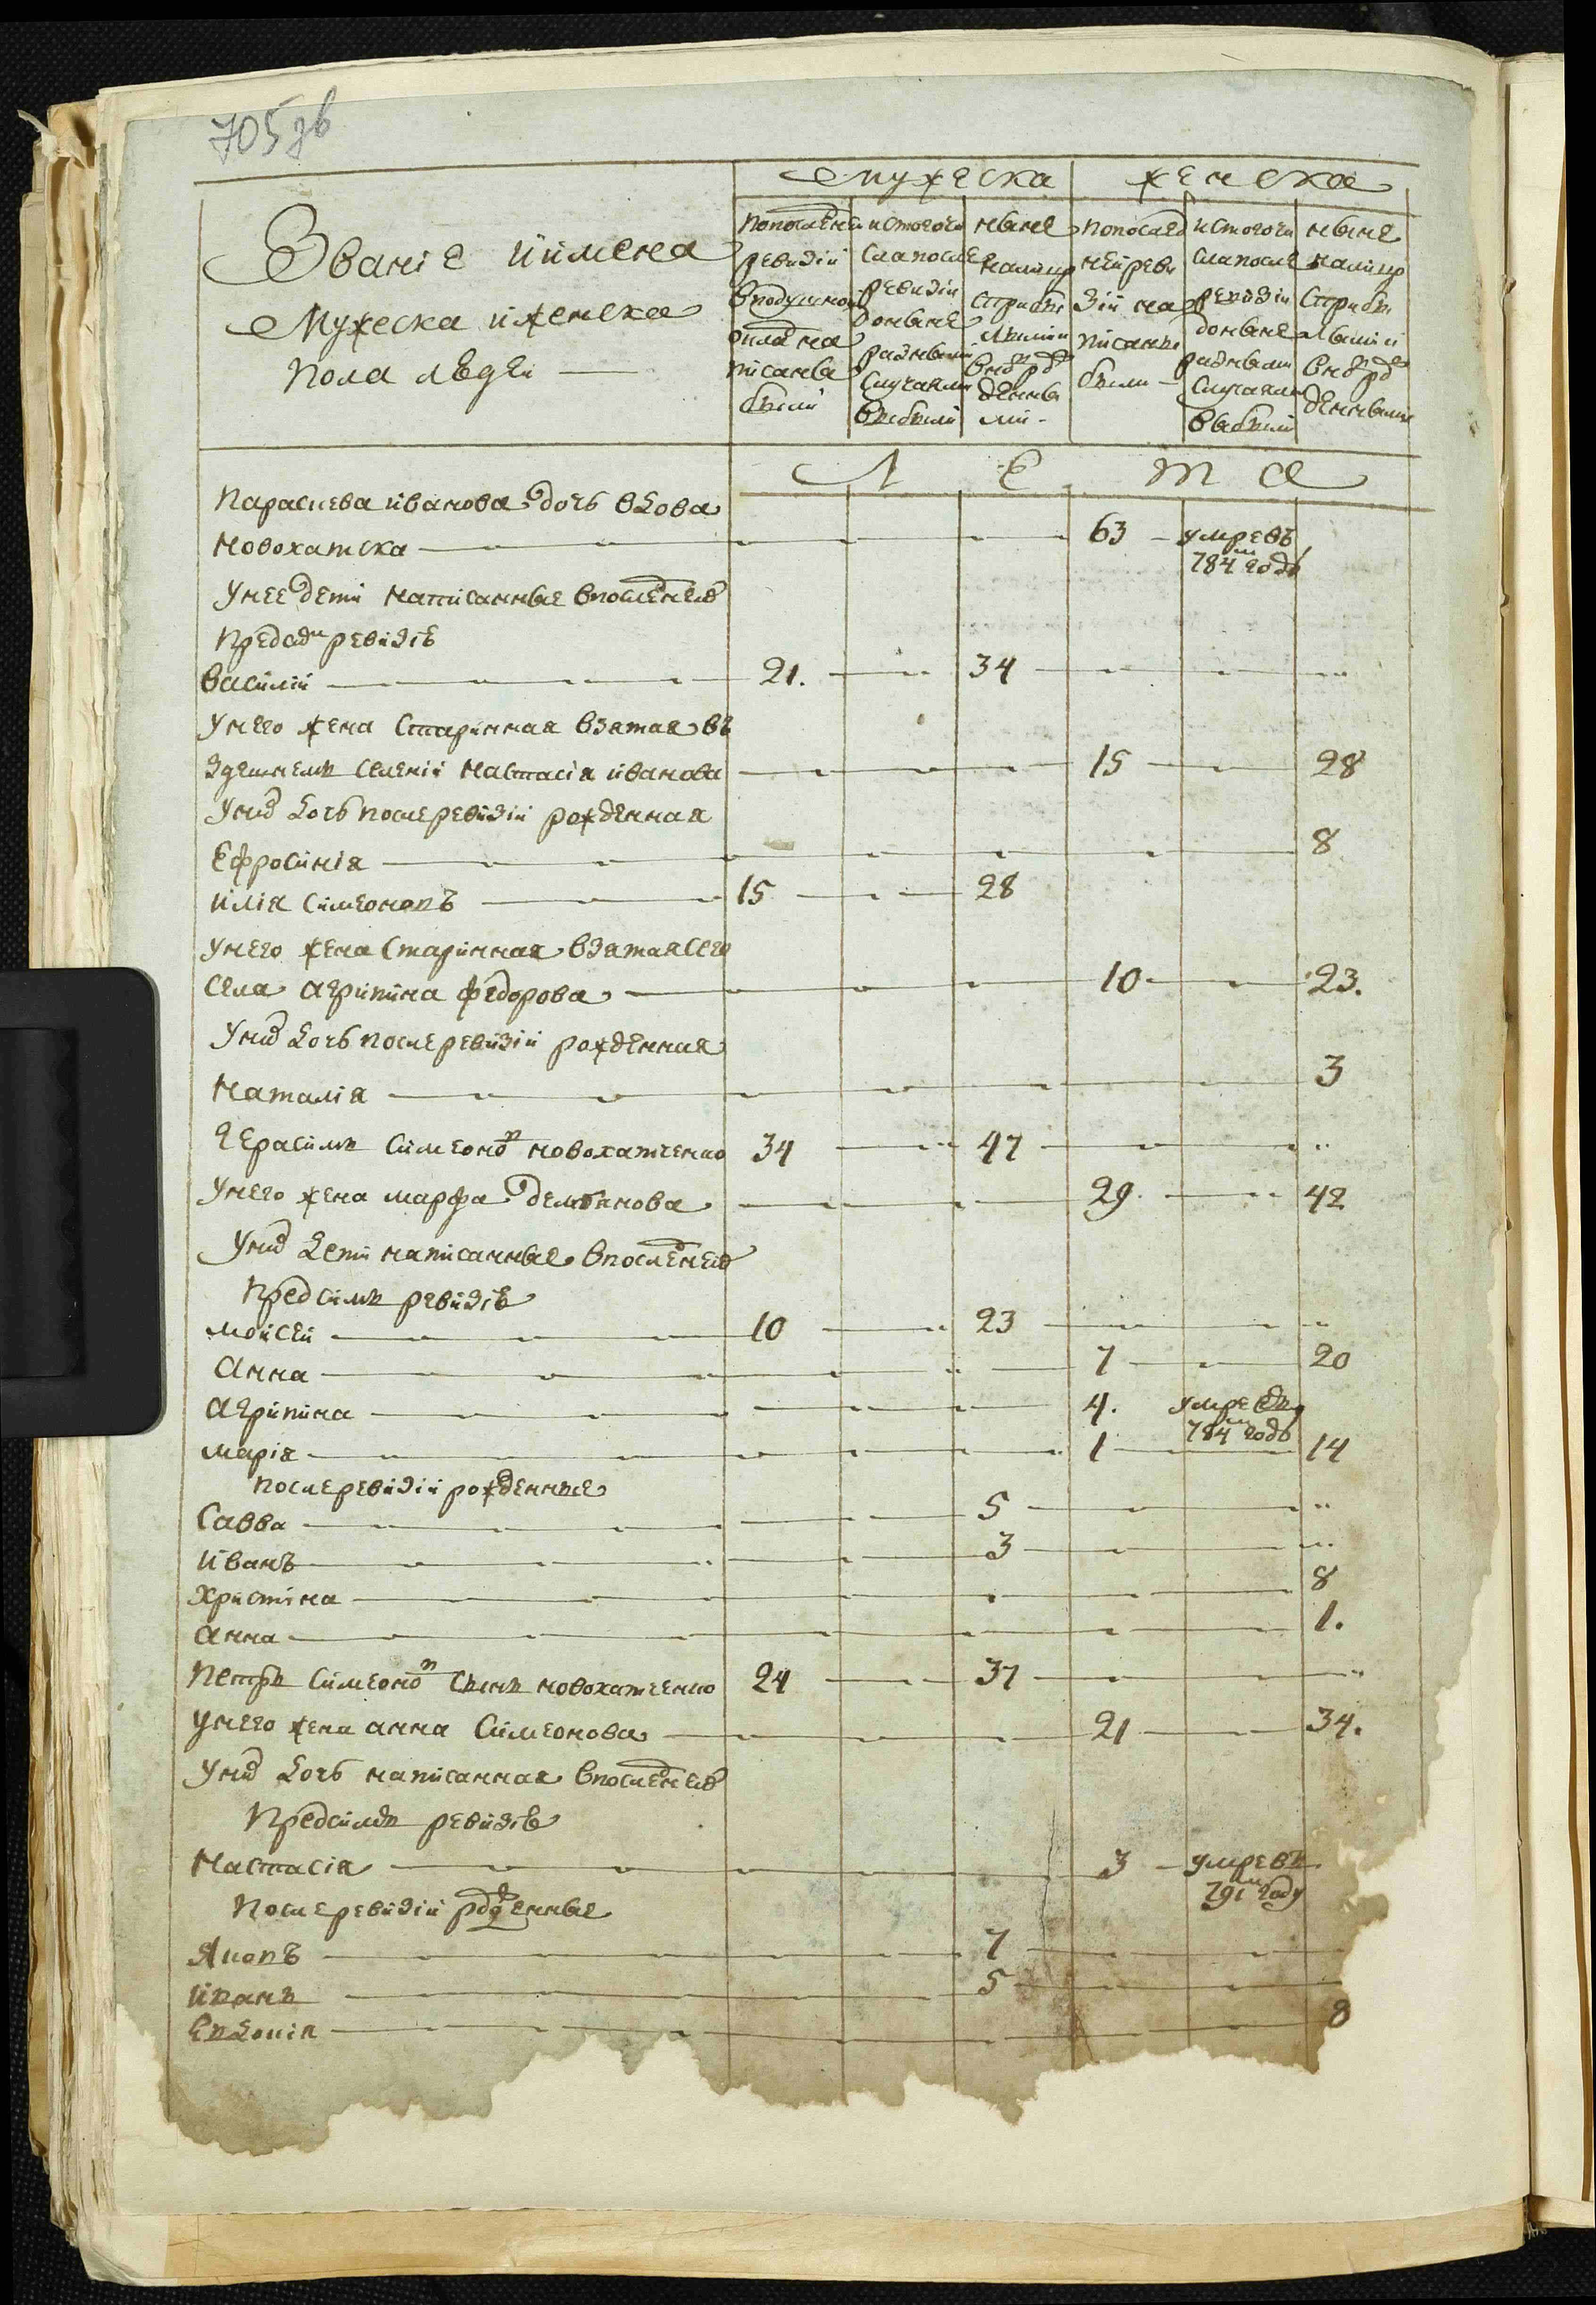 705 зв
мужеска женска
Званіе иимена
Мужеска иженска
Пола людеи
попоследней ревизіи вподушной окладъ написаны были
истого числа после ревизіи доныне разными случаями выбыли
ныне налицо сприбылыми вновь рожденными
попоследней ревизіи написаны были
истого числа после ревизіи доныне разными случаями выбыли
ныне налицо сприбылыми и вновь рожденными
Л Е т а
Параскева иванова дочь вдова
Новохатска 63 умре въ
784м годъ
Унее дети написанные впоследней
Предсим ревизіе
Василій 21. 34
Унего жена Старинная взятая въ
Здешнемъ селеніи Настасія иванова 15 28
Унейдочь после ревизіи рожденная
Ефросинія 8
илія Симеоновъ 15 28
Унего жена Старинная взятая сего
села агрипина федорова 10 23.
Уней дочь после ревизіи рожденная
Наталія 3
Герасимъ Симеоновъ новохатченко 34 47
Унего жена марфа демянова 29. 42
Уней дети написанные впоследней
Предсимъ ревизіе
моисей 10 23
Анна 7 20
Агрипина 4. умре въ
784м годъ
марія 1 14
после ревизіи рожденные
Савва 5
иванъ 3
Христина 8
анна 1.
Петръ Симеоновъ сынъ новохатченко 24 37
Унего жена анна Симеонова 21 34.
Уней дочь написанная впоследней
Предсимъ ревизіе
Настасія 3 умре въ
791м году
После ревизіи рожденные
Яковъ 7
иванъ 5
Евдокія 8